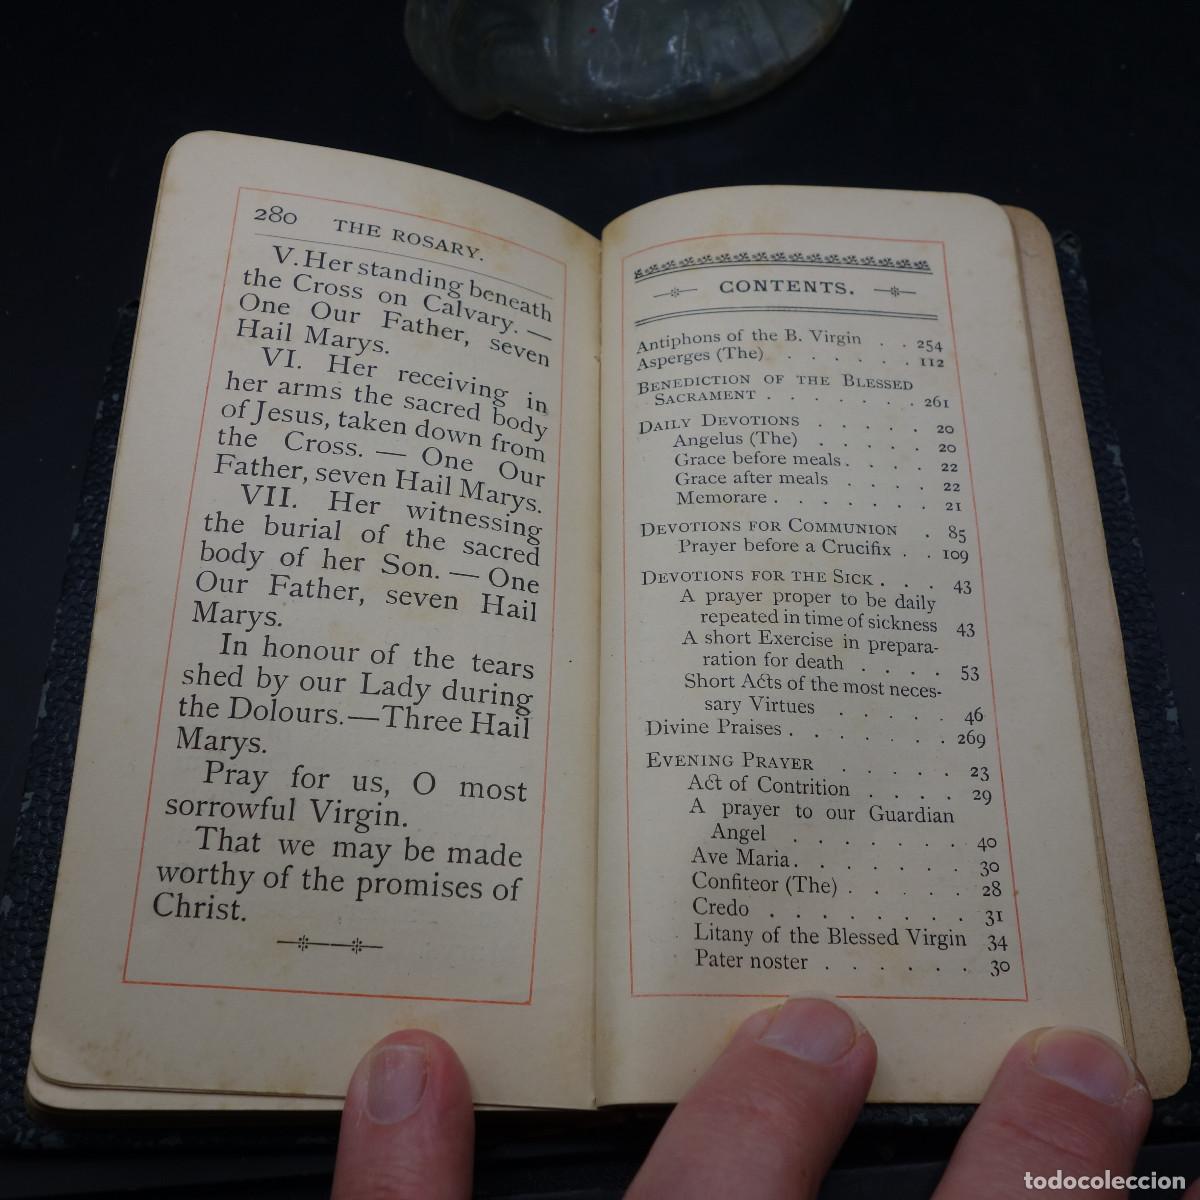 280 THE ROSARY.
V. Her standing beneath
the Cross on Calvary. —
One Our Father, seven
Hail Marys.
VI. Her receiving in
her arms the sacred body
of Jesus, taken down from
the Cross. — One Our
Father, seven Hail Marys.
VII. Her witnessing
the burial of the sacred
body of her Son. — One
Our Father, seven Hail
Marys.
In honour of the tears
shed by our Lady during
the Dolours.—Three Hail
Marys.
Pray for us, O most
sorrowful Virgin.
That we may be made
worthy of the promises of
Christ.
CONTENTS.
Antiphons of the B. Virgin . . 254
Asperges (The) . . . . . . 112
BENEDICTION OF THE BLESSED
SACRAMENT . . . . . . . 261
DAILY DEVOTIONS . . . . . 20
Angelus (The) . . . . . 20
Grace before meals . . . . 22
Grace after meals . . . . 22
Memorare . . . . . . . 21
DEVOTIONS FOR COMMUNION . 85
Prayer before a Crucifix . . 109
DEVOTIONS FOR THE SICK . . . 43
A prayer proper to be daily
repeated in time of sickness 43
A short Exercise in prepara-
ration for death . . . . 53
Short Acts of the most neces-
sary Virtues . . . . . 46
Divine Praises . . . . . . . 269
EVENING PRAYER . . . . . 23
Act of Contrition . . . . 29
A prayer to our Guardian
Angel . . . . . . . 40
Ave Maria . . . . . . . 30
Confiteor (The) . . . . . 28
Credo . . . . . . . . 31
Litany of the Blessed Virgin 34
Pater noster . . . . . . 30
todocoleccion